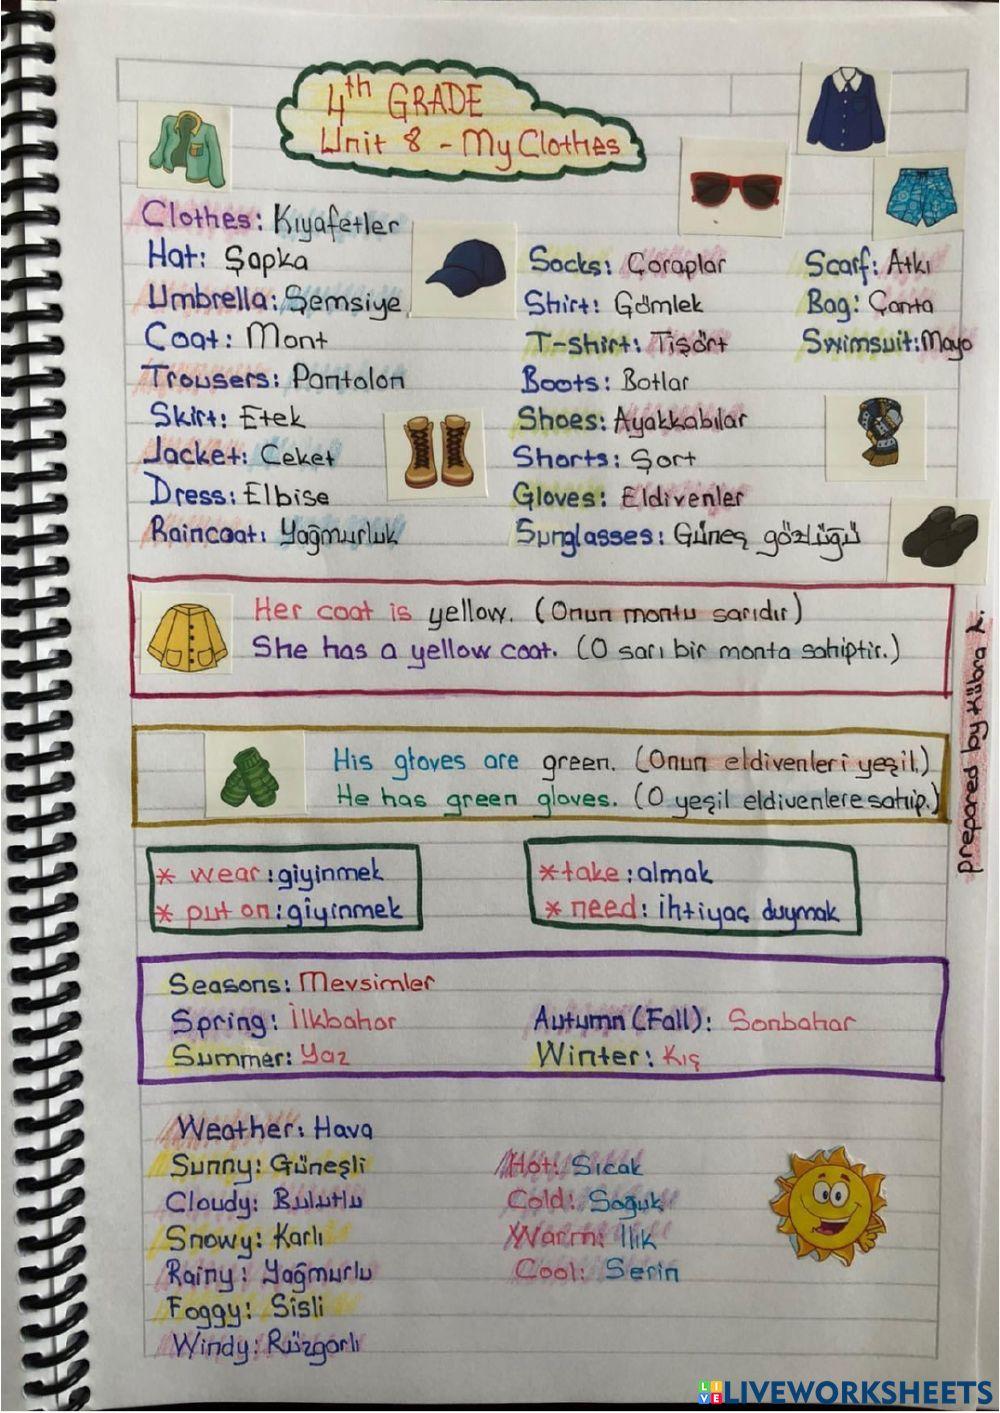 4th GRADE
Unit 8 - My Clothes
Clothes: Kıyafetler
Hat: Şapka
Umbrella: Şemsiye
Coat: Mont
Trousers: Pantolon
Skirt: Etek
Jacket: Ceket
Dress: Elbise
Raincoat: Yağmurluk
Socks: Çoraplar
Shirt: Gömlek
T-shirt: Tişört
Boots: Botlar
Shoes: Ayakkabılar
Shorts: Şort
Gloves: Eldivenler
Sunglasses: Güneş gözlüğü
Scarf: Atkı
Bag: Çanta
Swimsuit: Mayo
Her coat is yellow. (Onun montu sarıdır)
She has a yellow coat. (O sarı bir monta sahiptir.)
His gloves are green. (Onun eldivenleri yeşil.)
He has green gloves. (O yeşil eldivenlere sahip.)
prepared by Kübra L.
* wear: giyinmek
* put on: giyinmek
* take: almak
* need: ihtiyaç duymak
Seasons: Mevsimler
Spring: İlkbahar
Summer: Yaz
Autumn (Fall): Sonbahar
Winter: Kış
Weather: Hava
Sunny: Güneşli
Cloudy: Bulutlu
Snowy: Karlı
Rainy: Yağmurlu
Foggy: Sisli
Windy: Rüzgarlı
Hot: Sıcak
Cold: Soğuk
Warm: Ilık
Cool: Serin
LIVEWORKSHEETS